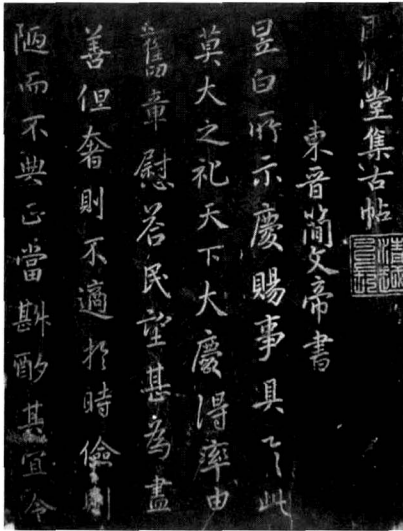 堂集古帖
東晋簡文帝書
昱白所示慶賜事具此
莫大之祀天下大慶得率由
舊章慰荅民望甚為盡
善但奢則不適於時儉則
陋而不典正當斟酌其宜令